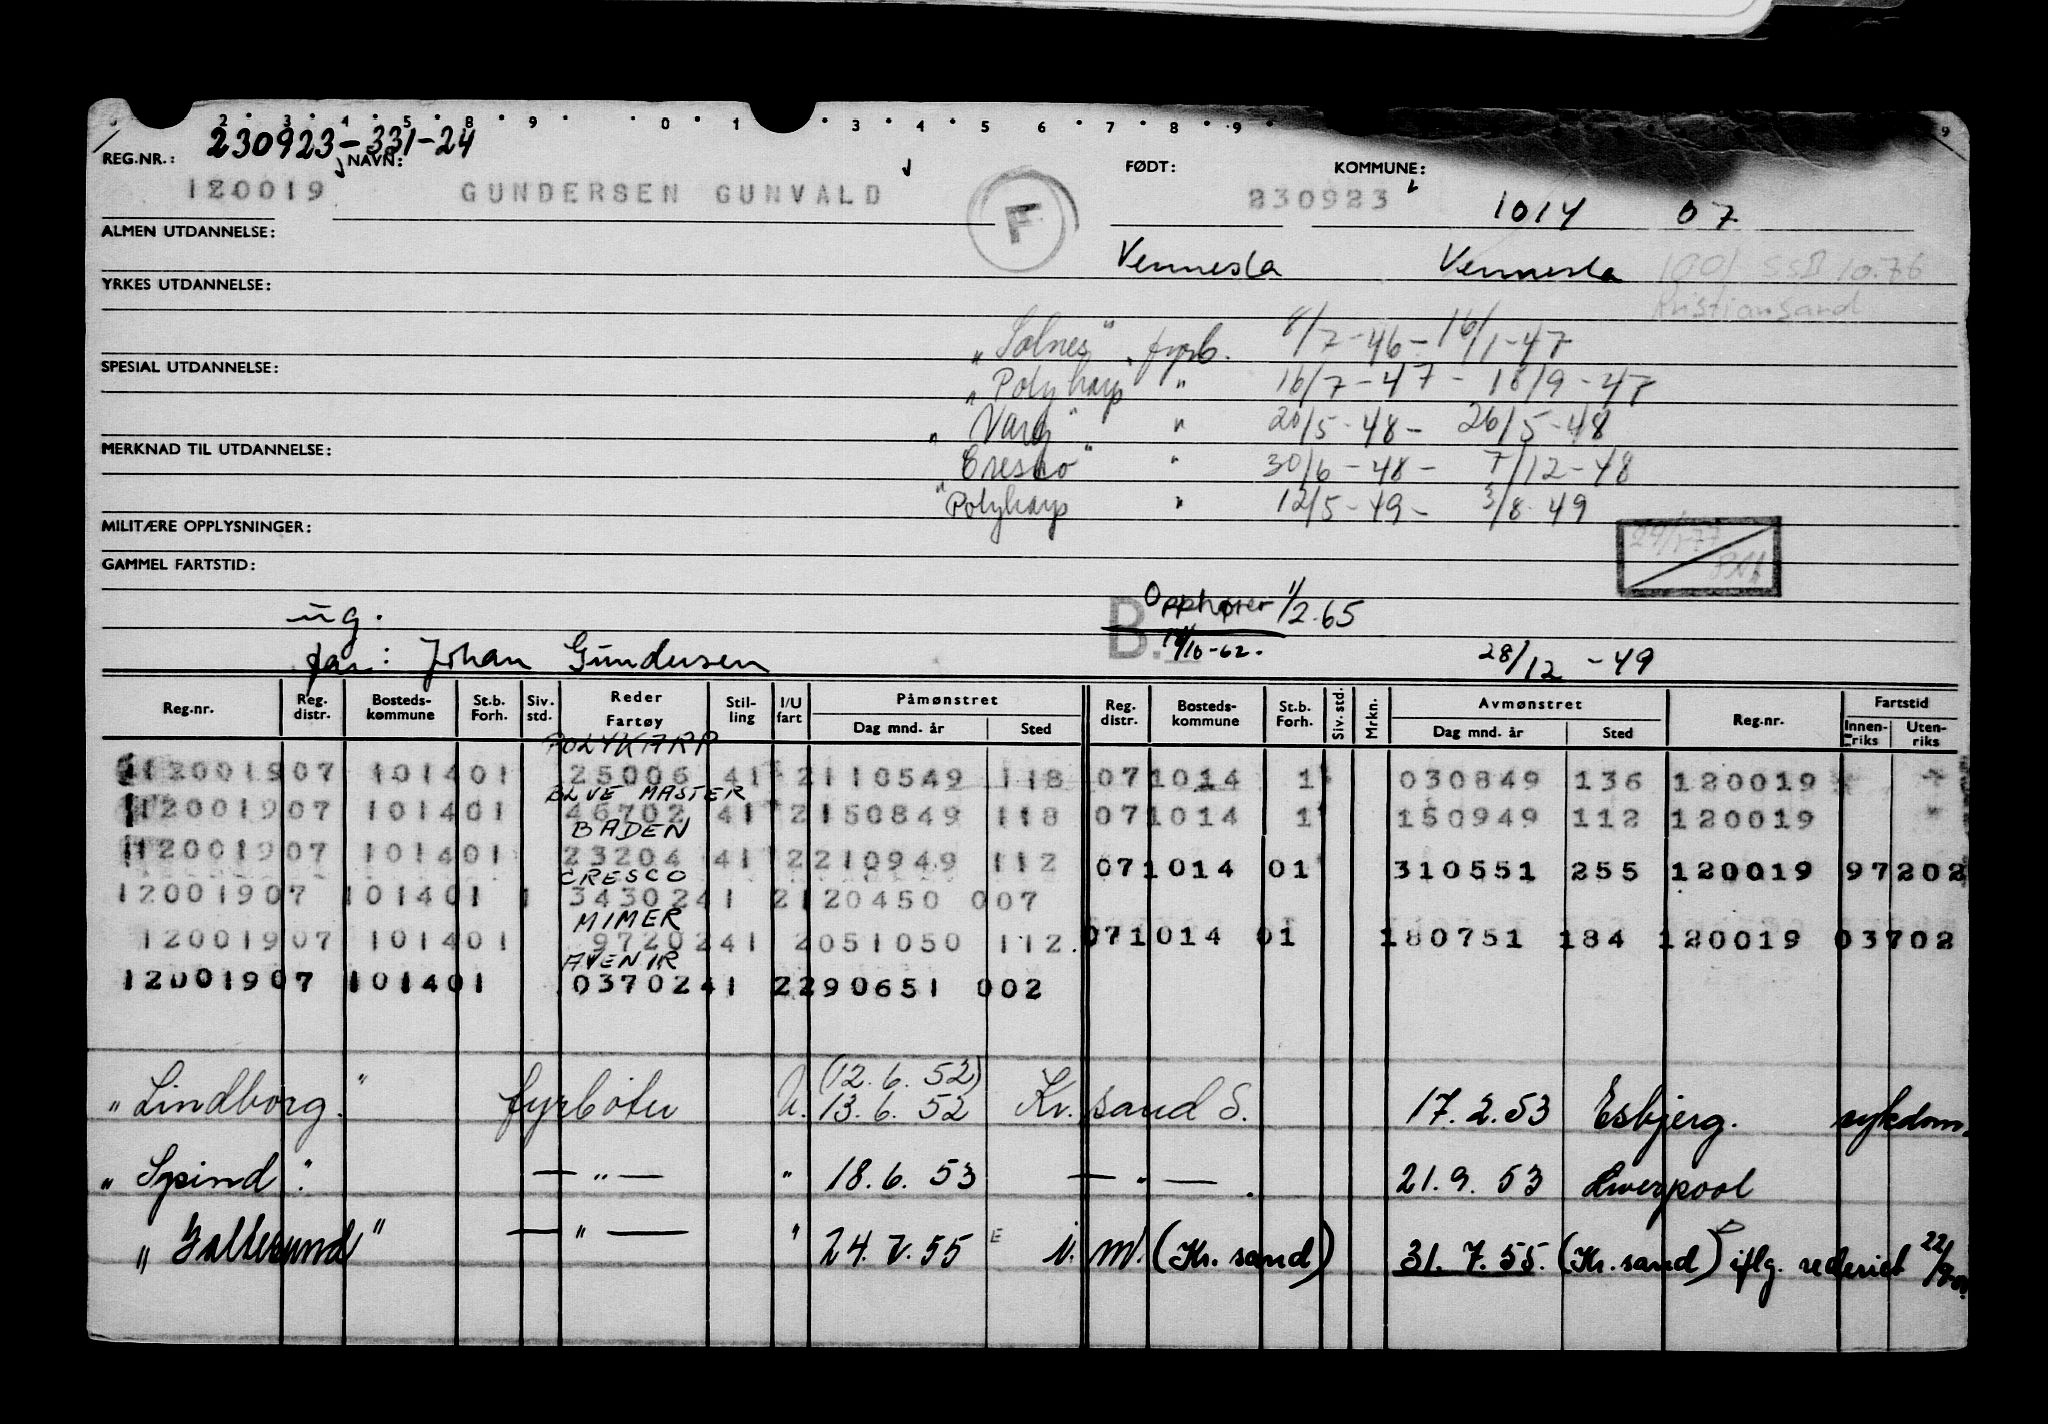 230923-331-24
REG.NR.: NAVN: FØDT: KOMMUNE:
120019 GUNDERSEN GUNVALD F 230923 1014 07
ALMEN UTDANNELSE: Vennesla Vennesla 1001 10.76
YRKES UTDANNELSE: Kristiansand
"Solnes" fyrb. 8/7-46 - 16/1-47
SPESIAL UTDANNELSE: "Polyharp" " 16/7-47 - 18/9-47
"Varg" " 20/5-48 - 26/5-48
MERKNAD TIL UTDANNELSE: Cresco" " 30/6-48 - 7/12-48
"Polyharp " 12/5-49 - 3/8-49
MILITÆRE OPPLYSNINGER:
GAMMEL FARTSTID:
ug. B. Opphører 1/2.65
far: Johan Gundersen /10-62. 28/12 -49
Reg.nr. Reg. distr. Bosteds-kommune St.b. Forh. Siv. std. Reder Fartøy Stil-ling I/U fart Påmønstret Dag mnd. år Sted Reg. distr. Bosteds-kommune St.b. Forh. Siv. std. Mrkn. Avmønstret Dag mnd. år Sted Reg.nr. Fartstid Innen-riks Uten-riks
POLYKARP
120019 07 1014 01 25006 41 2 110549 118 07 1014 1 030849 136 120019 *
BLUE MASTER
120019 07 1014 01 46702 41 2 150849 118 07 1014 1 150949 112 120019 *
BADEN
120019 07 1014 01 23204 41 2 210949 112 07 1014 01 310551 255 120019 97202
CRESCO
120019 07 1014 01 1 34302 41 2 120450 007
MIMER
120019 07 1014 01 97202 41 2 051050 112. 07 1014 01 180751 184 120019 03702
AVENIR
120019 07 1014 01 03702 41 2 290651 002
(12.6.52)
"Lindborg." fyrbøter U. 13.6.52 Kr.sand S. 17.2.53 Esbjerg. sykdom.
"Spind". — " — " 18.6.53 — " — . 21.9.53 Liverpool
"Galtesund" — " — " 24.7.55 E i. m. (Kr. sand) 31.7.55. (Kr. sand) iflg. rederiet